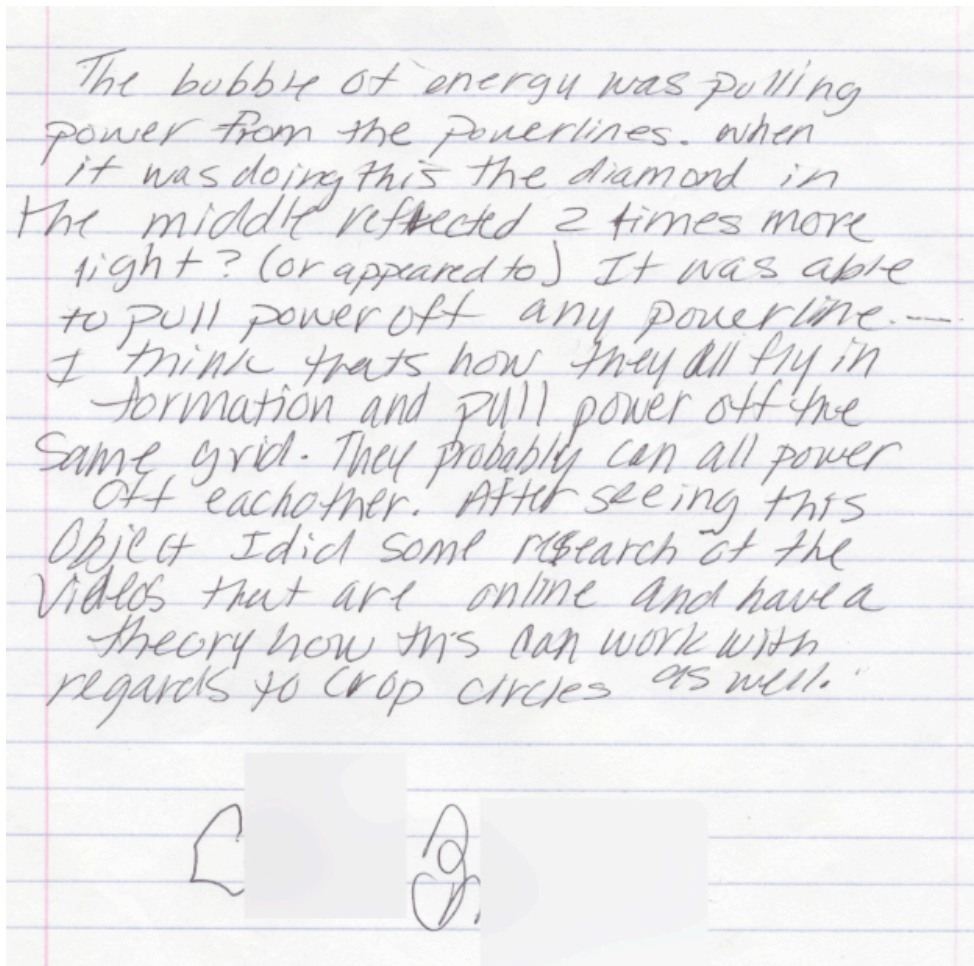 The bubble of energy was pulling
power from the powerlines. when
it was doing this the diamond in
the middle reflected 2 times more
light? (or appeared to) It was able
to pull power off any powerline. —
I think thats how they all fly in
formation and pull power off the
Same grid. They probably can all power
off eachother. After seeing this
Object I did some research at the
Videos that are online and have a
theory how this can work with
regards to crop circles as well.